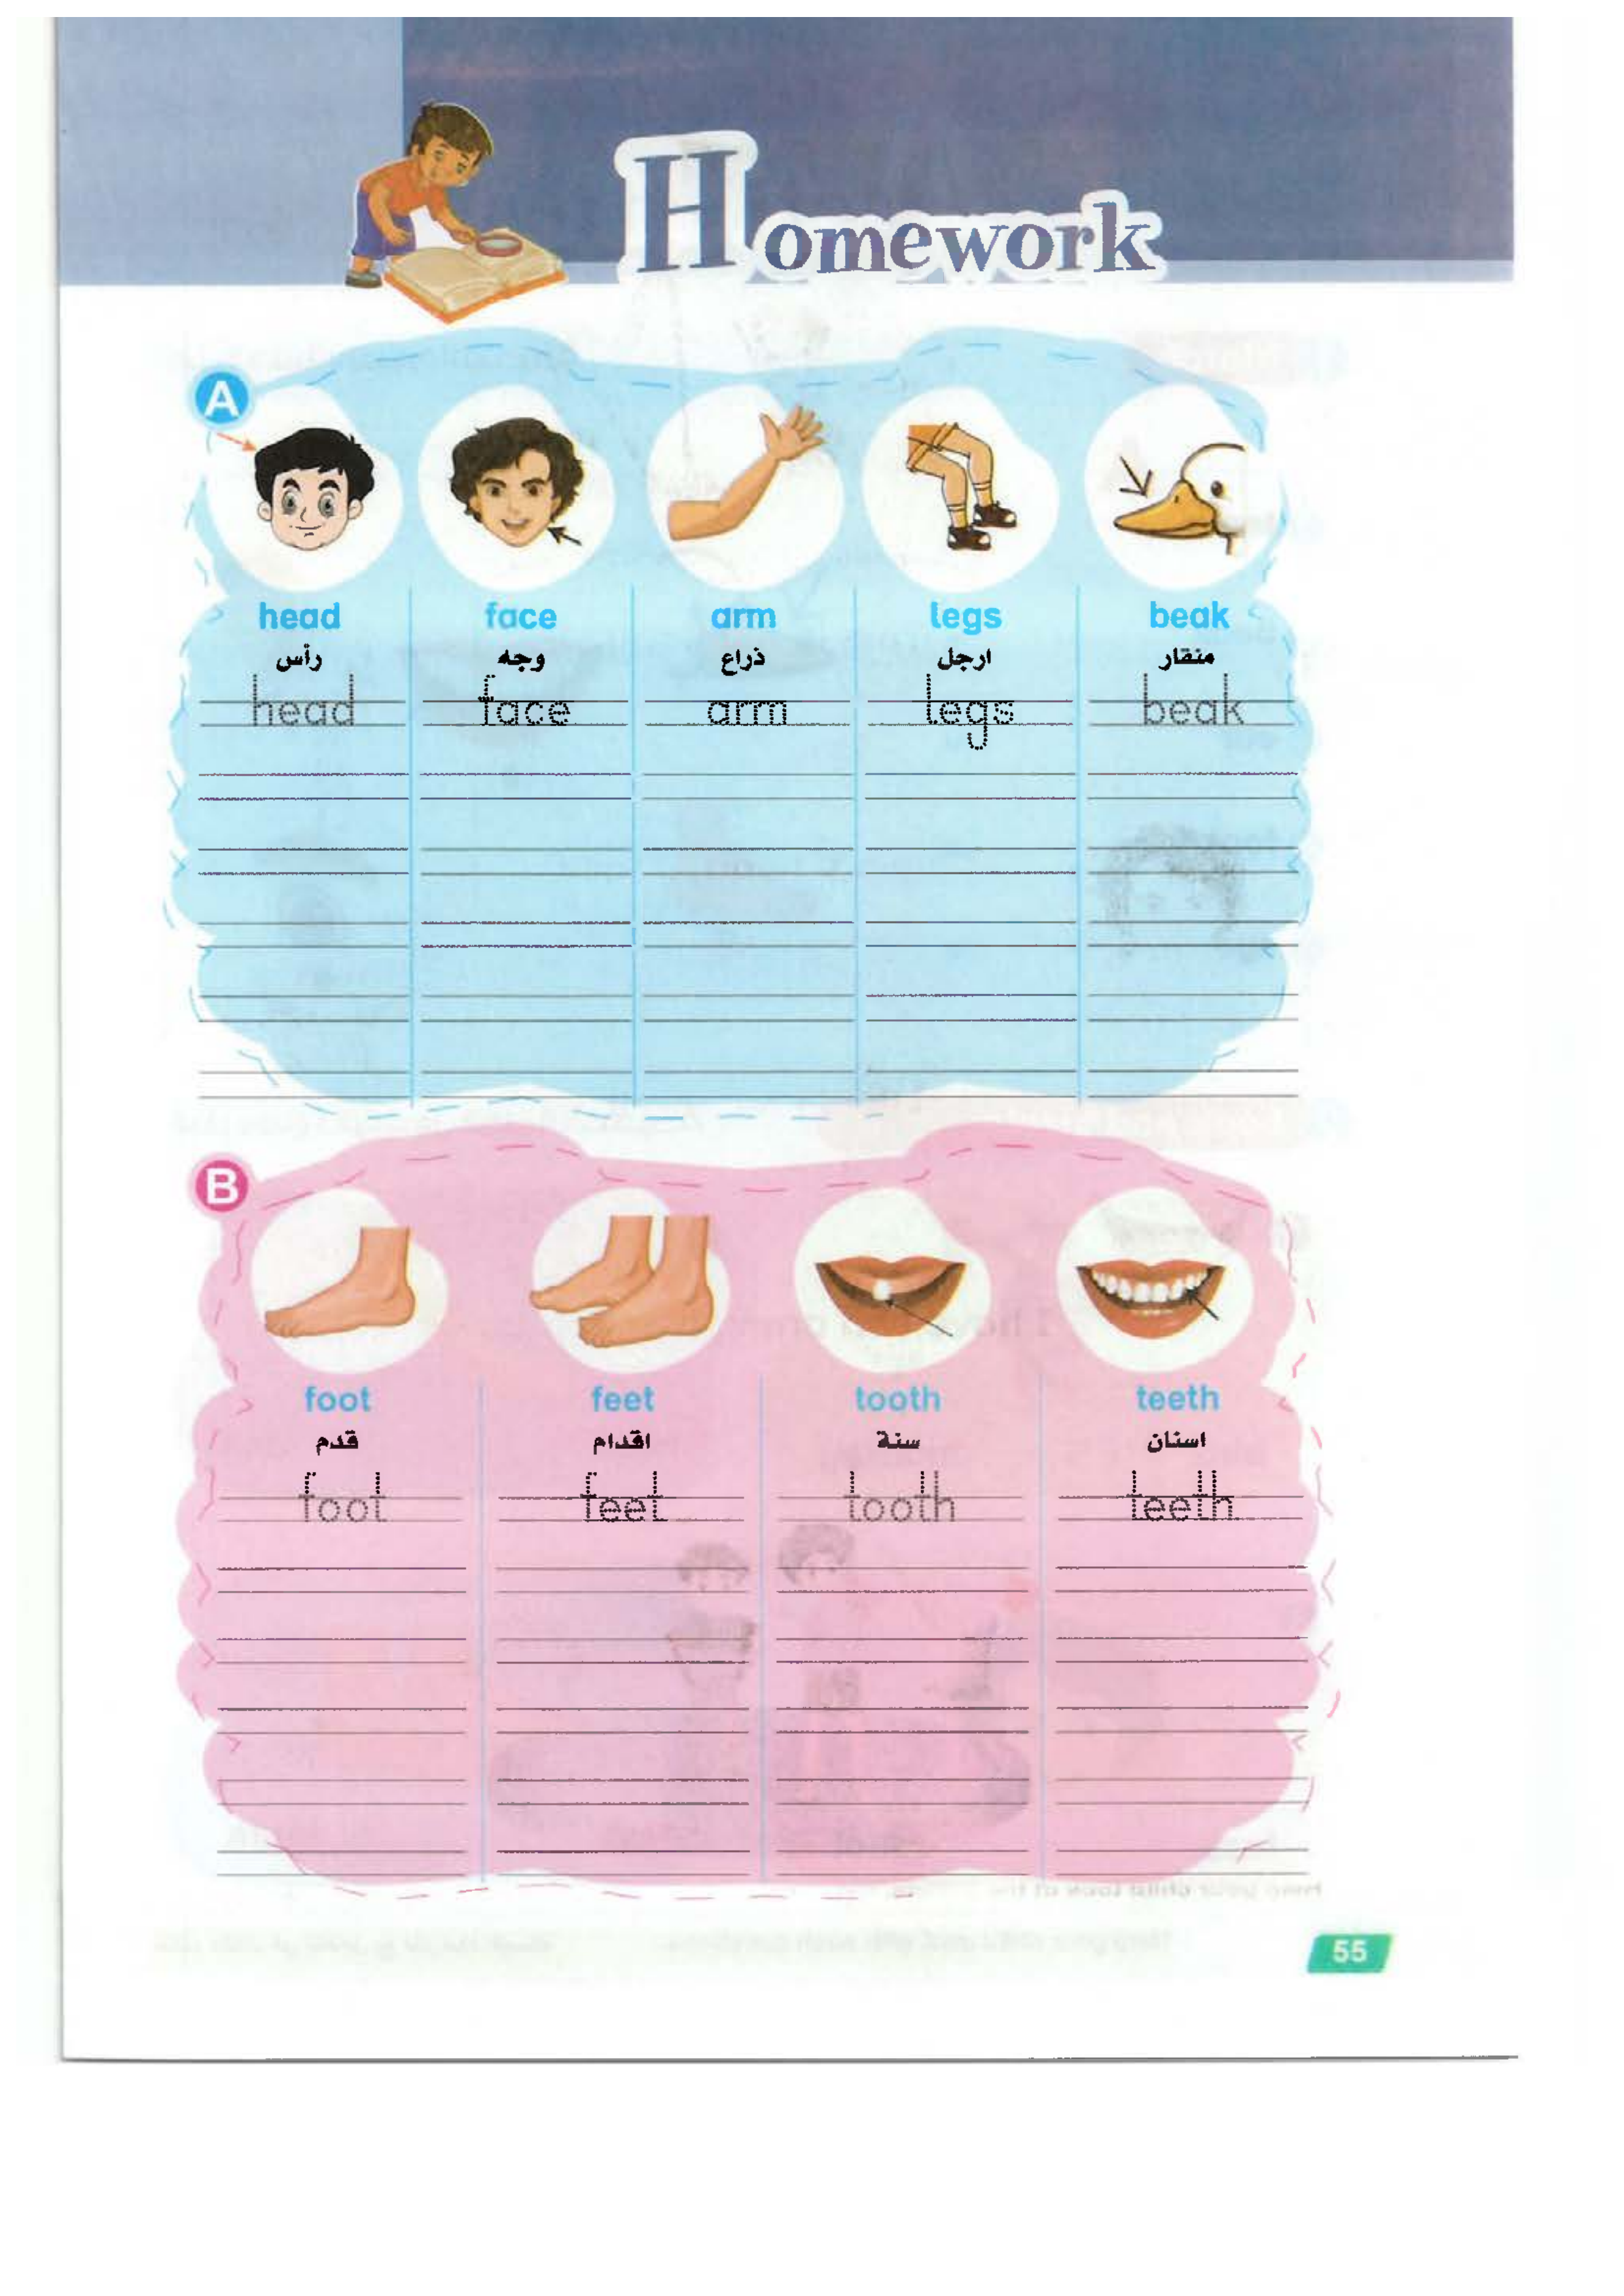 Homework
A
head face arm legs beak
رأس وجه ذراع ارجل منقار
head face arm legs beak
B
foot feet tooth teeth
قدم اقدام سنة اسنان
foot feet tooth teeth
55